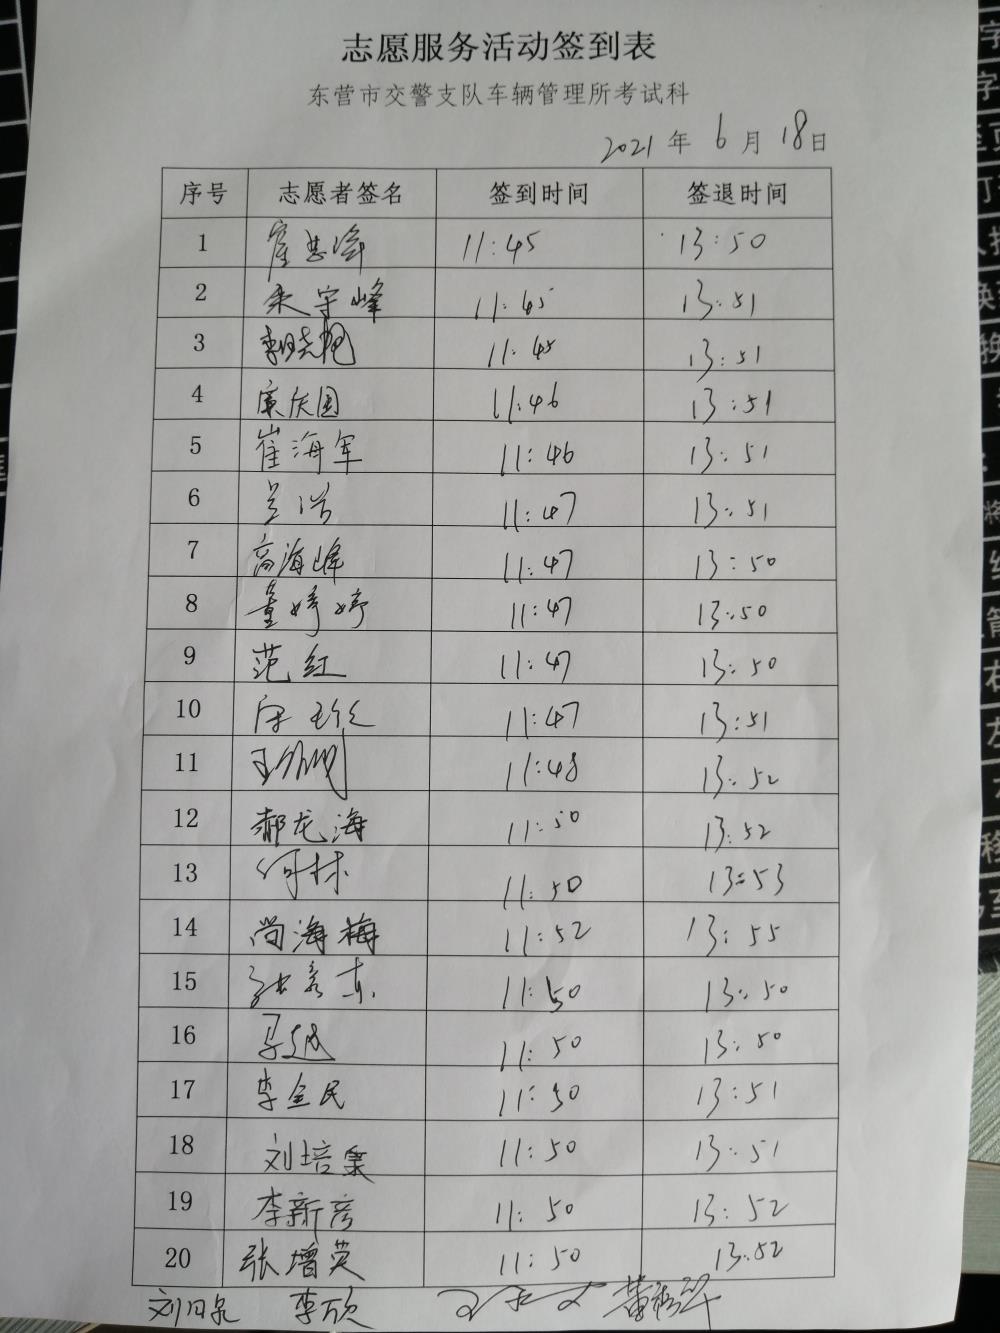 志愿服务活动签到表
东营市交警支队车辆管理所考试科
2021 年 6 月 18 日
序号 志愿者签名 签到时间 签退时间
1 11:45 13:50
2 宇峰 11:45 13:51
3 11:45 13:51
4 庆国 11:46 13:51
5 崔海军 11:46 13:51
6 兰浩 11:47 13:51
7 高海峰 11:47 13:50
8 董婷婷 11:47 13:50
9 范红 11:47 13:50
10 11:47 13:51
11 王 11:48 13:52
12 郝龙海 11:50 13:52
13 何林 11:50 13:53
14 尚海梅 11:52 13:55
15 11:50 13:50
16 马越 11:50 13:50
17 李金民 11:50 13:51
18 刘培 11:50 13:51
19 李新彦 11:50 13:52
20 张增英 11:50 13:52
李欣